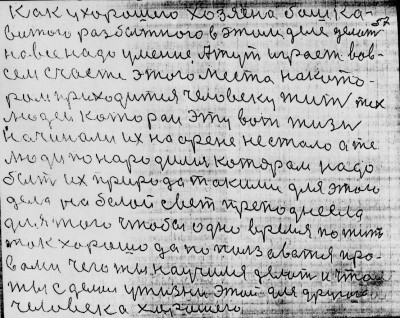 как у хорошего хозяена башка-
57
витого разбитного в этом деле делат
на все надо умение. А тут играет вов-
сем счасте этого места на кито-
рам приходится человеку жит тех
людей каторaи эту вот жизн
начинали их на арене нестало а те
люди понародили каторам надо
быт их природа такими для этого
дела на белой свет преподнесла
для того чтобы одно время пожит
так хорошо да попользаватся про-
вами чего ты научился делат и что
ты сделал у жизни этай для другого
человека харошего